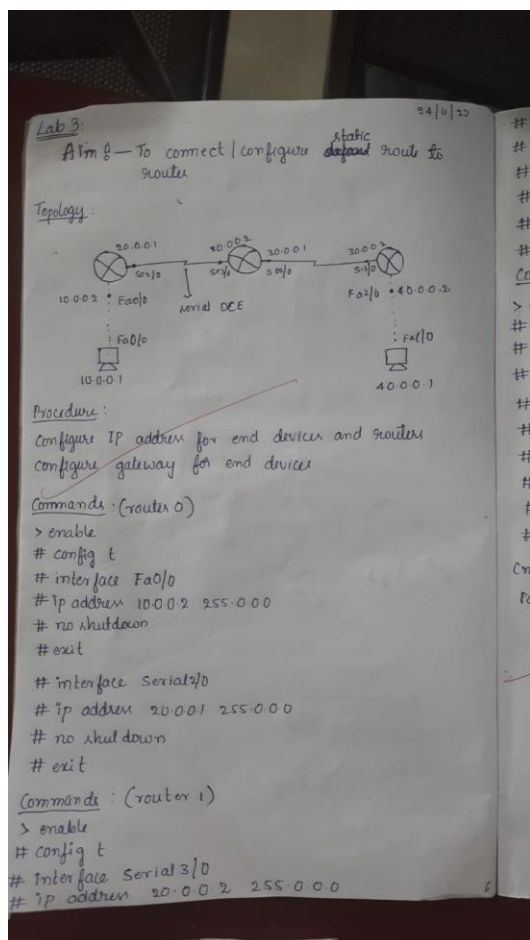 24/11/22
Lab 3:
Aim :- To connect / configure static route to
router
Topology :
20.0.0.1 20.0.0.2 30.0.0.1 30.0.0.2
10.0.0.2 Fa0/0 serial DCE 40.0.0.2
Fa0/0
10.0.0.1 40.0.0.1
Procedure :
Configure IP address for end devices and routers
Configure gateway for end devices
Commands : (router 0)
> enable
# config t
# interface Fa0/0
# ip address 10.0.0.2 255.0.0.0
# no shutdown
# exit
# interface Serial2/0
# ip address 20.0.0.1 255.0.0.0
# no shut down
# exit
Commands : (router 1)
> enable
# config t
# interface Serial 3/0
# ip address 20.0.0.2 255.0.0.0
6